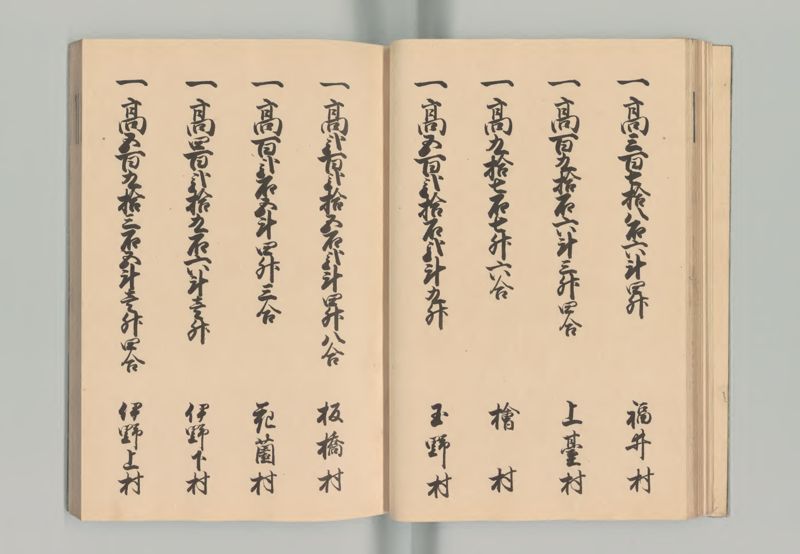 一高三百七拾八石六斗四升 福井村
一高百九拾石六斗三升四合 上臺村
一高九拾七石七升六合 檜村
一高五百弐拾石弐斗九升 玉野村
一高弐百弐拾五石弐斗四升八合 板橋村
一高百弐石五斗四升三合 花薗村
一高四百弐拾九石六斗壱升 伊野下村
一高五百九拾三石五斗壱升四合 伊野上村